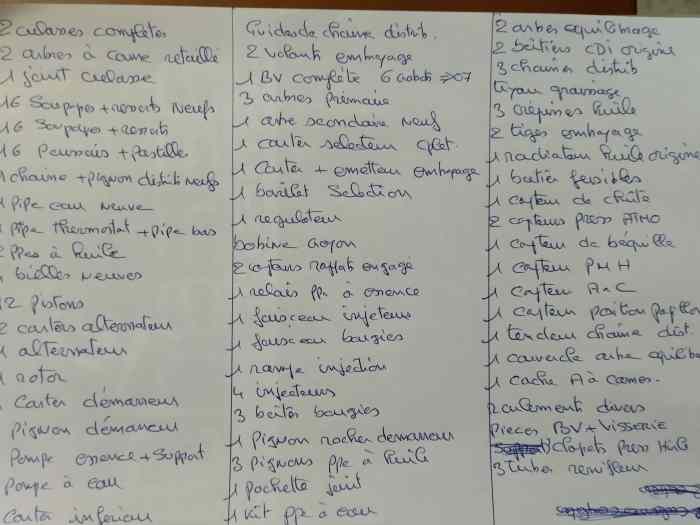 2 culasses complètes
2 arbres à came retaillé
1 joint culasse
16 Soupapes + ressorts Neufs
16 Soupapes + ressorts
16 Poussoirs + pastille
1 chaine + pignon distrib neufs
1 pipe eau neuve
1 pipe thermostat + pipe bas
2 ppes à huile
bielles neuves
12 pistons
2 carters alternateur
1 alternateur
1 rotor
Carter démarreur
Pignon démarreur
Pompe essence + support
Pompe à eau
Carter inférieur
Guides de chaine distrib.
2 volants embrayage
1 BV complète 6 =>07
3 arbres Primaire
1 arbre secondaire neuf
1 carter selecteur cplet.
1 Carter + emetteur embrayage
1 barillet Selection
1 regulateur
bobine crayon
2 capteurs rapport engagé
1 relais ppe à essence
1 faisceau injecteur
1 faisceau bougies
1 rampe injection
4 injecteurs
3 boîtes bougies
1 Pignon rocher demarreur
3 pignons ppe à huile
1 pochette joint
1 kit ppe à eau
2 arbres equilibrage
2 boîtiers CDI origine
3 chaines distrib
tuyau graissage
3 crépines huile
2 tiges embrayage
1 radiateur huile origine
1 boitier fusibles
1 capteur de chûte
2 capteurs press ATMO
1 capteur de béquille
1 capteur PMH
1 capteur AaC
1 capteur position papillon
1 tendeur chaine dist.
1 couvercle arbre equilib
1 cache A à Cames.
roulements divers
pieces BV + Visserie
Clapets Press Huile
3 tubes reniflard